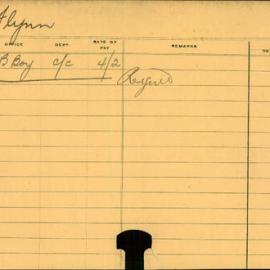 Flynn
OFFICE DEPT. RATE OF PAY REMARKS
B Boy c/c 4/2
Resgd